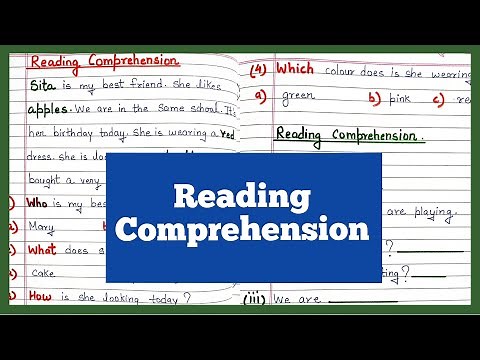 Reading Comprehension
Sita is my best friend. She likes
apples. We are in the same school. It's
her birthday today. She is wearing a red
dress. She is
bought a very
Who is my bes
Mary
What does s
cake
How is she looking today?
(4) Which colour does is she wearing
a) green b) pink c) re
Reading Comprehension.
are playing.
?
ting?
(iii) We are
Reading
Comprehension